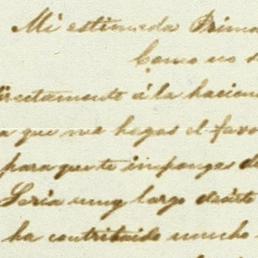 Mi estimada Prima
Como no s
directamente á la hacien
a que me hagas el favo
para que te impongas d
Seria muy largo decirte
ha contribuido mucho